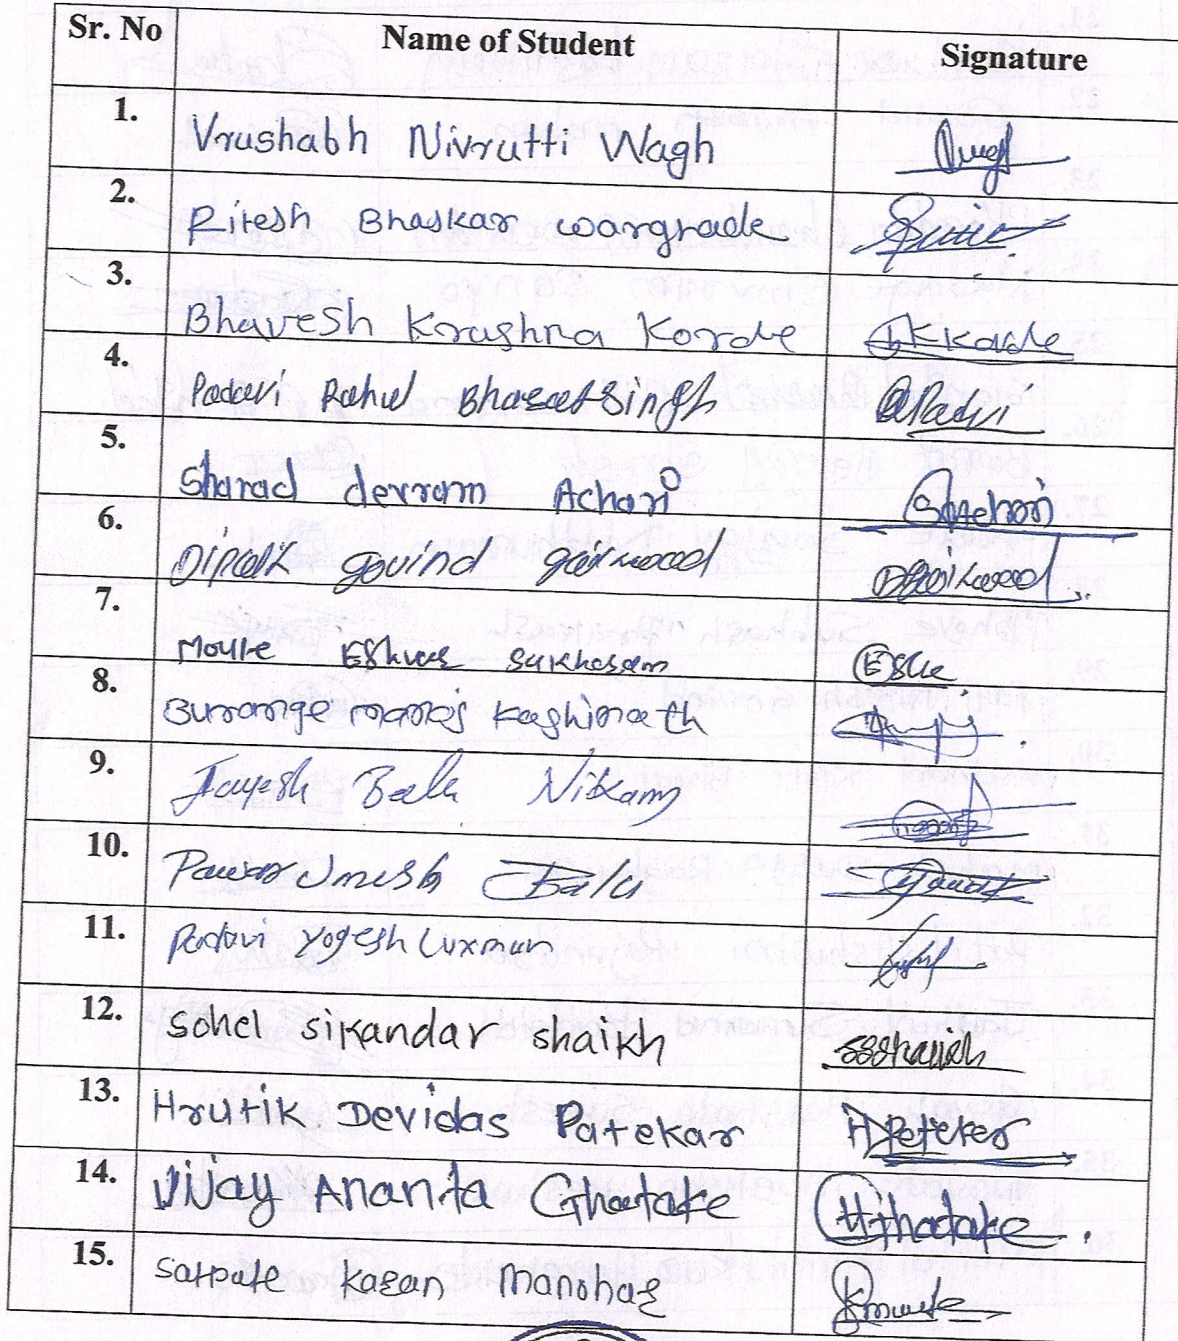 Sr. No Name of Student Signature
1. Vrushabh Nivrutti Wagh
2. Ritesh Bhaskar wargrade
3. Bhavesh Krashna Korde
4. Padavi Rahul Bharatsingh Padvi
5. Sharad devram Achari
6. Dipak govind gaikwad
7. Moule Eshvar Sukhasam
8. Burange manoj Kashinath
9. Jayesh Bala Nikam
10. Pawar Umesh Balu
11. Padavi Yogesh Luxman
12. sohel sikandar shaikh ssshaikh
13. Hrutik Devidas Patekar
14. Vijay Ananta Ghatake
15. Satpute Karan Manohar